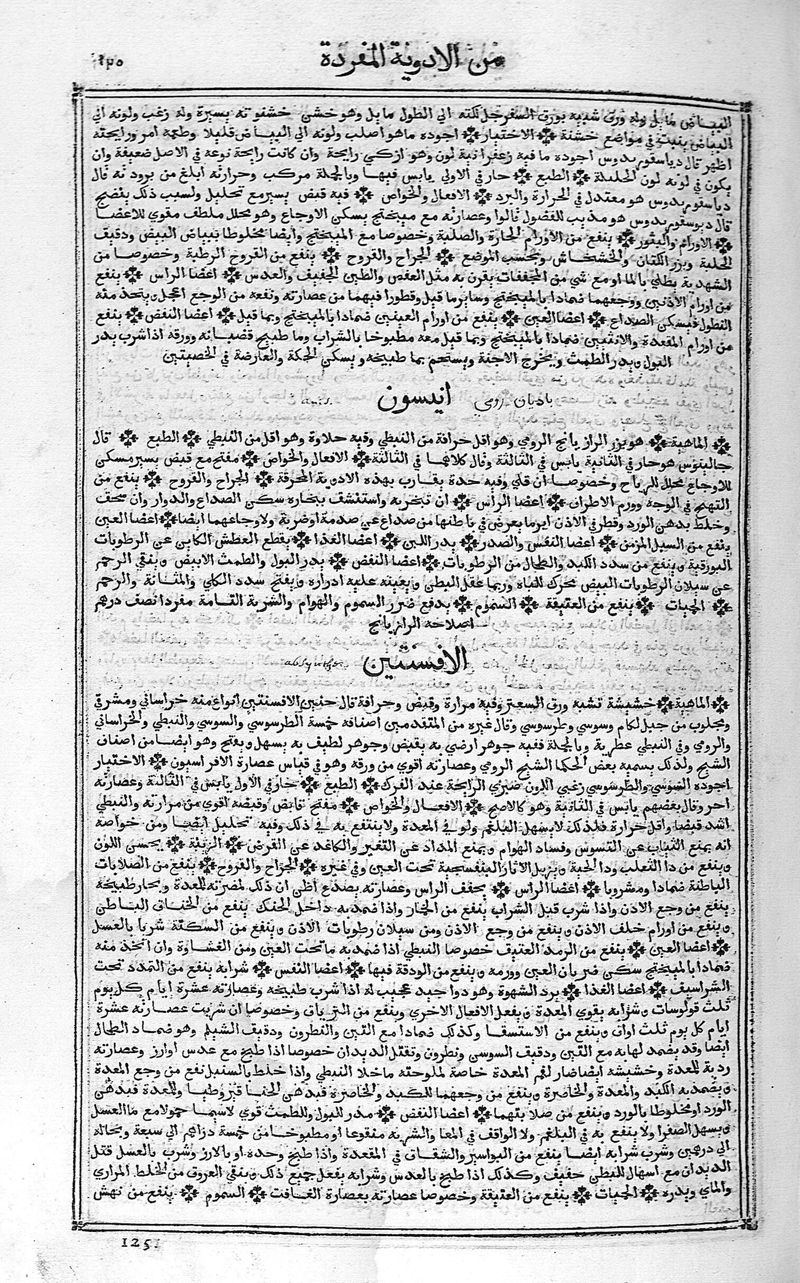 من الادوية المفردة ١٢٥
البياض ما بل وله ورق شبيه بورق السفرجل لكنه الي الطول مايل وهو خشن خشفوته يسيرة وله زغب ولونه الي
البياض ينبت في مواضع خشنة الاختيار اجوده ماهو اصلب ولونه الي البياض قليلا وطعمه امر ورايحته
اظهر قال دياسقوريدوس اجوده ما فيه زعفرانية لون وهو ازكي رايحة وان كانت رايحة نوعه في الاصل ضعيفة وان
يكون في لونه لون الحلبة الطبع حار في الاولي يابس فيها وبالجملة مركب وحرارته ابلغ من برودته قال
دياسقوريدوس هو معتدل في الحرارة والبرد الافعال والخواص فيه قبض يسير مع تحليل ولسبب ذلك ينضج
قال ديوسقوريدوس هو مذيب للفضول قالوا وعصارته مع ميبختج يسكن الاوجاع وهو محلل ملطف مقوي للاعضا
الاورام والبثور ينفع من الاورام الحارة والصلبة وخصوصا مع الميبختج وايضا مخلوطا ببياض البيض ودقيق
الحلبة وبزر الكتان والخشخاش وبحسب الموضع الجراح والقروح ينفع من القروح الرطبة وخصوصا من
الشهدية يطلي بالما او مع شي من المجففات يقرن به مثل العفص والطين الجفيف والعدس اعضا الراس ينفع
من اورام الاذنين ووجعهما ضمادا بالميبختج وساير ما قيل وقطورا فيهما من عصارته ونفعه من الوجع اعجل ويتخذ منه
النطول فيسكن الصداع اعضا العين ينفع من اورام العينين ضمادا بالميبختج وبما قيل اعضا النفض ينفع
من اورام المقعدة والانثيين ضمادا بالميبختج وبما قيل معه مطبوخا بالشراب وما طبيخ قضبانه وورقه اذا شرب يدر
البول ويدر الطمث ويخرج الاجنة ويستحم بما طبيخه ويسكن الحكة والعارضة في الخصيتين
انيسون باديان رومي
الماهية هو بزر الرازيانج الرومي وهو اقل حرافة من النبطي وفيه حلاوة وهو اقل من النبطي الطبع قال
جالينوس هو حار في الثانية يابس في الثالثة وقال كلاهما في الثالثة الافعال والخواص مفتح مع قبض يسير مسكن
للاوجاع محلل للرياح وخصوصا ان قلي وفيه حدة يقارب بهذه الادوية المحرقة الجراح والقروح ينفع من
التهيج في الوجه وورم الاطراف اعضا الراس ان تبخر به واستنشف بخاره سكن الصداع والدوار وان سحق
وخلط بدهن الورد وقطر في الاذن ابرا ما يعرض في باطنها من صداع عن صدمة او ضربة ولاوجاعهما ايضا اعضا العين
ينفع من السبل المزمن اعضا النفس والصدر يدر اللبن اعضا الغذا يقطع العطش الكاين عن الرطوبات
البورقية وينفع من سدد الكبد والطحال من الرطوبات اعضا النفض يدر البول والطمث الابيض وينقي الرحم
عن سيلان الرطوبات البيض محرك للباه وربما عقل البطن ويعينه عليه ادراره ويفتح سدد الكلي والمثانة والرحم
الحميات ينفع من العتيقة السموم يدفع ضرر السموم والهوام والشربة التامة مفردا نصف درهم
اصلاحه الرازيانج
الافسنتين absynthe
الماهية خشيشة تشبه ورق السعتر وفيه مرارة وقبض وحرافة قال حنين الافسنتين انواع منه خراساني ومشرقي
ومجلوب من جبل لكام وسوسي وطرسوسي وقال غيره من المتقدمين اصنافه خمسة الطرسوسي والسوسي والنبطي والخراساني
والرومي وفي النبطي عطرية وبالجملة ففيه جوهر ارضي به يقبض وجوهر لطيف به يسهل ويفتح وهو ايضا من اصناف
الشيح ولذلك يسميه بعض الحكما الشيح الرومي وعصارته اقوي من ورقه وهو في قياس عصارة الافراسيون الاختيار
اجوده السوسي والطرسوسي زغبي اللون صبري الرايحة عند الفرك الطبع حار في الاول يابس في الثالثة وعصارته
احر وقال بعضهم يابس في الثانية وهو كالاصح الافعال والخواص مفتح قابض وقبضه اقوي من مرارته والنبطي
اشد قبضا واقل حرارة فلذلك لايسهل البلغم ولو في المعدة ولا ينتفع به في ذلك وفيه تحليل ايضا ومن خواصه
انه يمنع الثياب عن التسوس وفساد الهوام ويمنع المداد عن التغير والكاغد عن القرض الزينة يحسن اللون
وينفع من دا الثعلب ودا الحية ويزيل الاثار البنفسجية تحت العين وفي غيره الجراح والقروح ينفع من الصلابات
الباطنة ضمادا ومشروبا اعضا الراس يجفف الراس وعصارته يصدع اظن ان ذلك لمضرته للمعدة وبخار طبيخه
ينفع من وجع الاذن واذا شرب قبل الشراب ينفع من الخمار واذا ضمد به داخل الحنك ينفع من الخناق الباطن
وينفع من اورام خلف الاذن وينفع من وجع الاذن ومن سيلان رطوبات الاذن وينفع من السكتة شربا بالعسل
اعضا العين ينفع من الرمد العتيق خصوصا النبطي اذا ضمد به ما تحت العين ومن الغشاوة وان اتخذ منه
ضمادا بالميبختج سكن ضربان العين وورمه وينفع من الودقة فيها اعضا النفس شرابه ينفع من التمدد تحت
الشراسيف اعضا الغذا يرد الشهوة وهو دوا جيد عجيب له اذا شرب طبيخه وعصارته عشرة ايام كل يوم
ثلث قولوسات وشرابه يقوي المعدة ويفعل الافعال الاخري وينفع من اليرقان وخصوصا ان شربت عصارته عشرة
ايام كل يوم ثلث اواق وينفع من الاستسقا وكذلك ضمادا مع التين والنطرون ودقيق الشيلم وهو ضماد الطحال
ايضا وقد يضمد لهابه مع التين ودقيق السوسن ونطرون وتقتل الديدان خصوصا اذا طبخ مع عدس او ارز وعصارته
ردية للمعدة وخشيشه ايضا ضار لفم المعدة خاصة لملوحته ماخلا النبطي واذا خلط بالسنبل نفع من وجع المعدة
ويضمد به الكبد والمعدة والخاصرة وينفع من وجعهما للكبد والخاصرة فبدهن الحنا قيروطيا وللمعدة فبدهن
الورد او مخلوطا بالورد وينفع من صلابتهما اعضا النفض مدر للبول وللطمث قوي لاسيما حمولا مع ما العسل
ويسهل الصفرا ولا ينفع به في البلغم ولا الواقف في المعا والشربة منقوعا او مطبوخا من خمسة دراهم الي سبعة وبحاله
الي درهمين وشرب شرابه ايضا ينفع من البواسير والشقاق في المقعدة واذا طبخ وحده او بالارز وشرب بالعسل قتل
الديدان مع اسهال للبطن خفيف وكذلك اذا طبخ بالعدس وشرابه يفعل جميع ذلك وينقي العروق من الخلط المراري
والماي ويدره الحميات ينفع من العتيقة وخصوصا عصارته بعصارة الغافت السموم ينفع من نهش
125